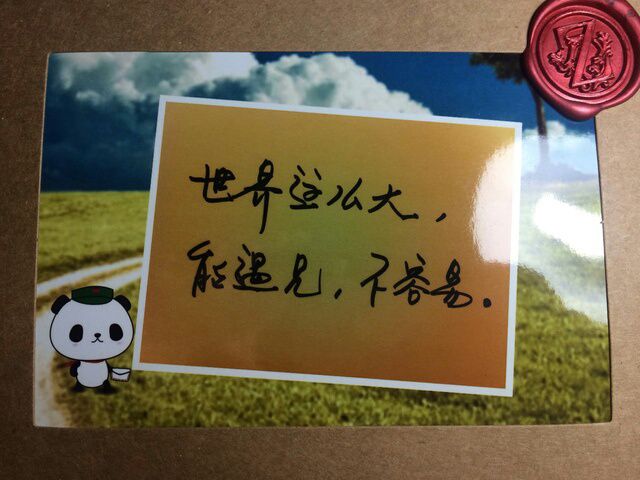 世界这么大，
能遇见，不容易。
Z